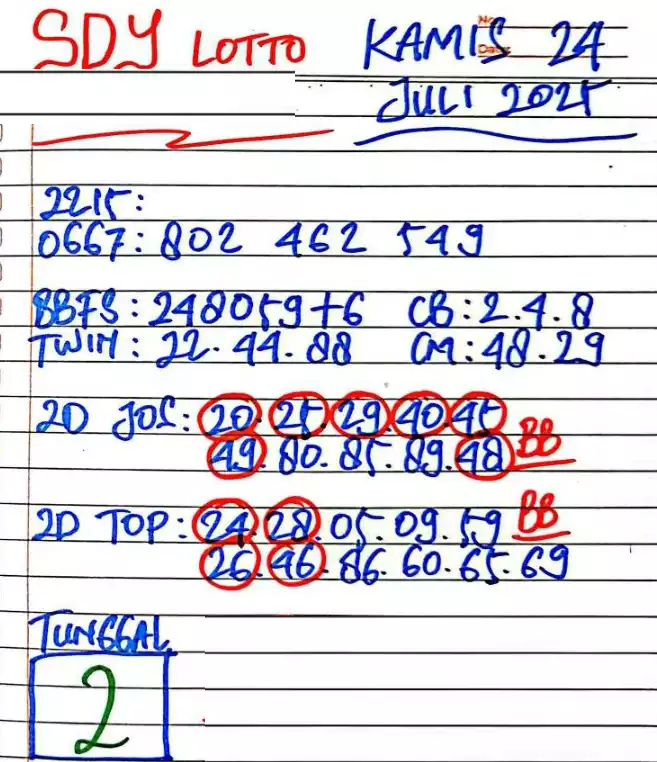 SDY LOTTO KAMIS 24
JULI 2025
No
Date
2215:
0667: 802 462 549
BBFS: 248059+6 CB: 2.4.8
TWIN: 22.44.88 CM: 48.29
2D JOS: 20.25.29.40.45
49.80.85.89.48 BB
2D TOP: 24.28.05.09.59 BB
26.46.86.60.65.69
TUNGGAL
2